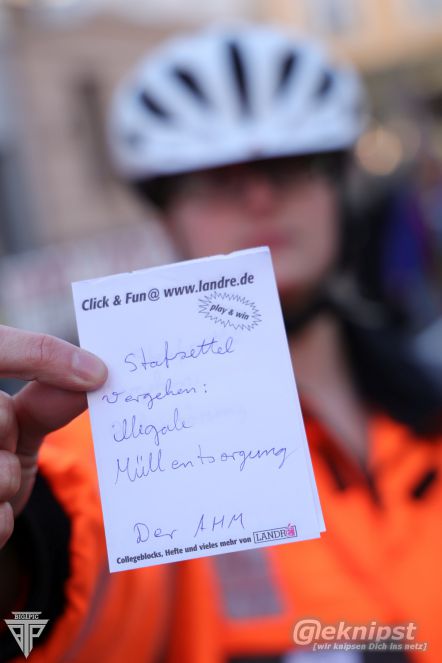 Click & Fun @ www.landre.de
play & win
Stafzettel
Vergehen:
illigale
Müllentsorgung
Der AHM
Collegeblocks, Hefte und vieles mehr von LANDRÉ
BIG2PIC
@eknipst
[wir knipsen Dich ins netz]